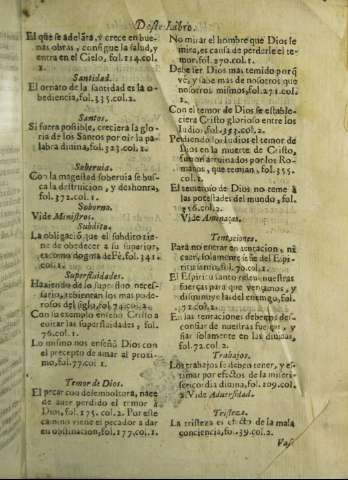 Deste Libro.
El que se adelãta, y crece en bue-
nas obras, consigue la salud, y
entra en el Cielo, fol. 114. col.
1.
Santidad.
El ornato de la santidad es la o-
bediencia, fol. 335. col. 2.
Santos.
Si fuera posible, creciera la glo-
ria de los Santos por oir la pa-
labra diuina, fol. 323. col. 1.
Soberuia.
Con la magestad soberuia se bus-
ca la destruicion, y deshonra,
fol. 372. col. 1.
Soborno.
Vide Ministros.
Subdito.
La obligaciõ que el subdito tiene
de obedecer a su superior,
es como dogma de Fè, fol. 341.
col. 1.
Superfluidades.
Haziendo de lo superfluo neces-
sario, rebientan los mas pode-
rosos del siglo, fol. 74. col. 2.
Con su exemplo enseñò Christo a
euitar las superfluidades, fol.
76. col. 1.
Lo mismo nos enseñò Dios con
el precepto de amar al proxi-
mo, fol. 77. col. 1.
Temor de Dios.
El pecar con desemboltura, nace
de auer perdido el temor à
Dios, fol. 175. col. 2. Por este
camino viene el pecador a dar
en obstinacion, fol. 177. col. 1.
No mirar el hombre que Dios le
mira, es causa de perderle el te-
mor. fol. 270. col. 1.
Deue ser Dios mas temido porq̃
vè, y sabe mas de nosotros que
nosotros mismos, fol. 271. col.
2.
Con el temor de Dios se estable-
ciera Christo glorioso entre los
Iudios, fol. 353. col. 2.
Perdiendo los Iudios el temor de
Dios en la muerte de Cristo,
fueron arruinados por los Ro-
manos, que temian, fol. 355.
col. 2.
El temeroso de Dios no teme à
las potestades del mundo, fol.
356. col. 2.
Vide Amenaças.
Tentaciones.
Para no entrar en tentacion, ni
caer, solamente se fie del Espi-
ritu diuino, fol. 70. col. 1.
El Espiritu santo nuestras
fuerças para que vençamos, y
disminuye las del enemigo, fol.
72. col. 1.
En las tentaciones debemos des-
confiar de nuestras fuerças, y
fiar solamente en las diuinas,
fol. 72. col. 2.
Trabajos.
Los trabajos se deben tener, y es-
timar por efectos de la miseri-
cordia diuina, fol. 109. col.
2. Vide Aduersidad.
Tristeza.
La tristeza es efecto de la mala
conciencia, fol. 39. col. 2.
Vas-